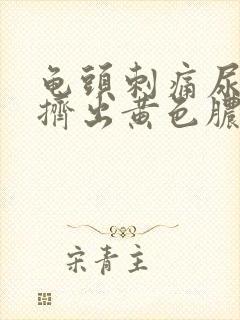 龟頭刺痛尿
擠出黃色膿
宋青主